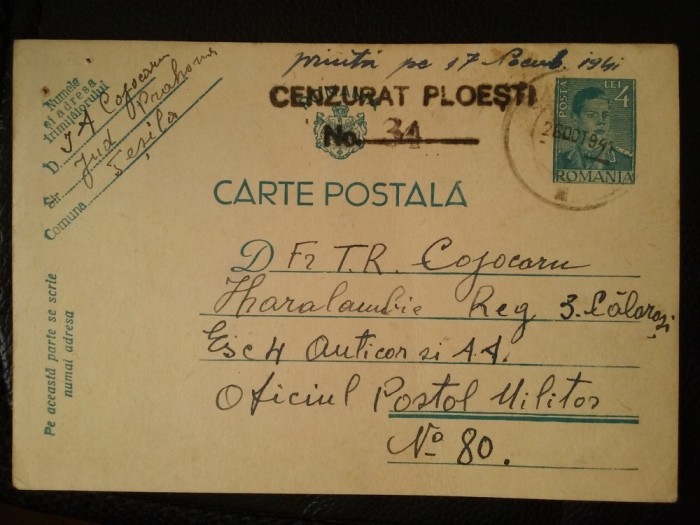 primită pe 17 Noemb. 1941
CENZURAT PLOEȘTI
No. 34
POSTA LEI 4
ROMANIA
26 OCT 941
Numele
și adresa
trimițătorului
D. I A Cojocaru
Str. Jud Prahova
Comuna Țeșila
CARTE POSTALĂ
D Fr T.R. Cojocaru
Haralambie Reg 3. Călărași
Esc 4 Anticar si A.A.
Oficiul Postal Militar
No 80.
Pe această parte se scrie
numai adresa